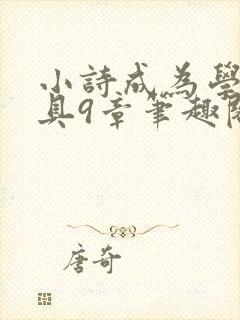 小詩成為學
具9章筆趣
唐奇